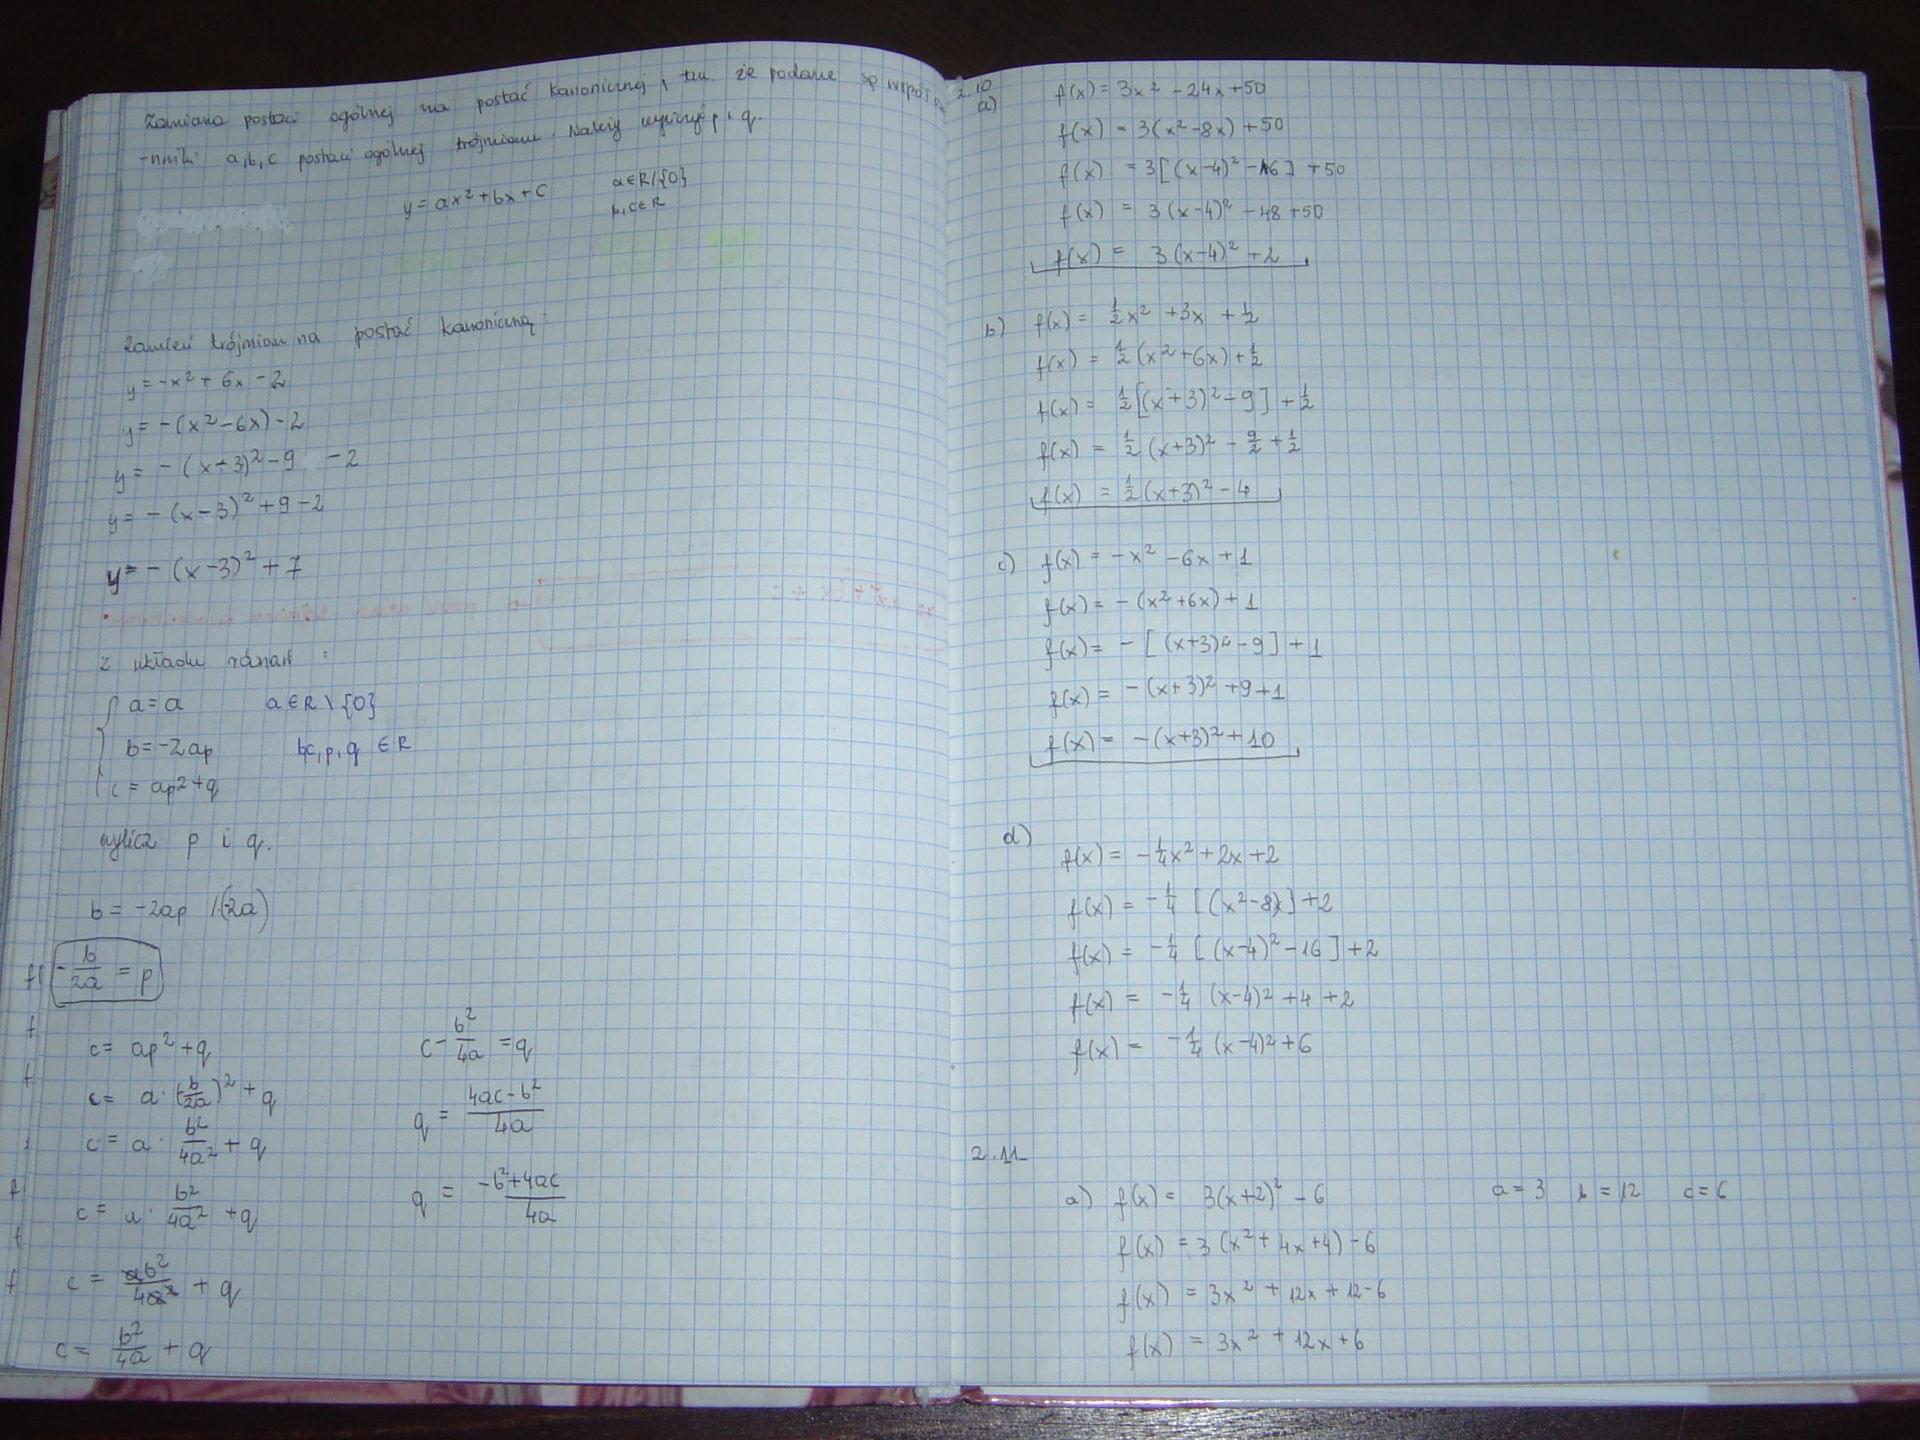 Zamiana postaci ogólnej na postać kanonicznej, tzn. że podane są współczy
-nniki a,b,c postaci ogólnej trójmianu. Należy wyliczyć p i q.
y = ax² + bx + c a∈R\{0}
b,c∈R
Zamień trójmian na postać kanoniczną:
y = -x² + 6x - 2
y = -(x² - 6x) - 2
y = - (x+3)² - 9 - 2
y = - (x-3)² + 9 - 2
y = - (x-3)² + 7
z układu równań :
{ a = a a∈R \ {0}
b = -2ap b,c,p,q ∈R
c = ap² + q
wylicz p i q.
b = -2ap /:(-2a)
- b/2a = p
c = ap² + q
c = a·(-b/2a)² + q
c = a · b²/4a² + q
c = a · b²/4a² + q
c = ab²/4a² + q
c = b²/4a + q
c - b²/4a = q
q = (4ac - b²)/4a
q = (-b² + 4ac)/4a
2.10
a) f(x) = 3x² - 24x + 50
f(x) = 3(x² - 8x) + 50
f(x) = 3[(x-4)² - 16] + 50
f(x) = 3(x-4)² - 48 + 50
f(x) = 3(x-4)² + 2
b) f(x) = ½x² + 3x + ½
f(x) = ½(x² + 6x) + ½
f(x) = ½[(x+3)² - 9] + ½
f(x) = ½(x+3)² - 9/2 + ½
f(x) = ½(x+3)² - 4
c) f(x) = -x² - 6x + 1
f(x) = -(x² + 6x) + 1
f(x) = - [(x+3)² - 9] + 1
f(x) = -(x+3)² + 9 + 1
f(x) = -(x+3)² + 10
d)
f(x) = -¼x² + 2x + 2
f(x) = -¼ [(x² - 8x] + 2
f(x) = -¼ [(x-4)² - 16] + 2
f(x) = -¼ (x-4)² + 4 + 2
f(x) = -¼ (x-4)² + 6
2.11
a) f(x) = 3(x+2)² - 6 a = 3 b = 12 c = 6
f(x) = 3(x² + 4x + 4) - 6
f(x) = 3x² + 12x + 12 - 6
f(x) = 3x² + 12x + 6